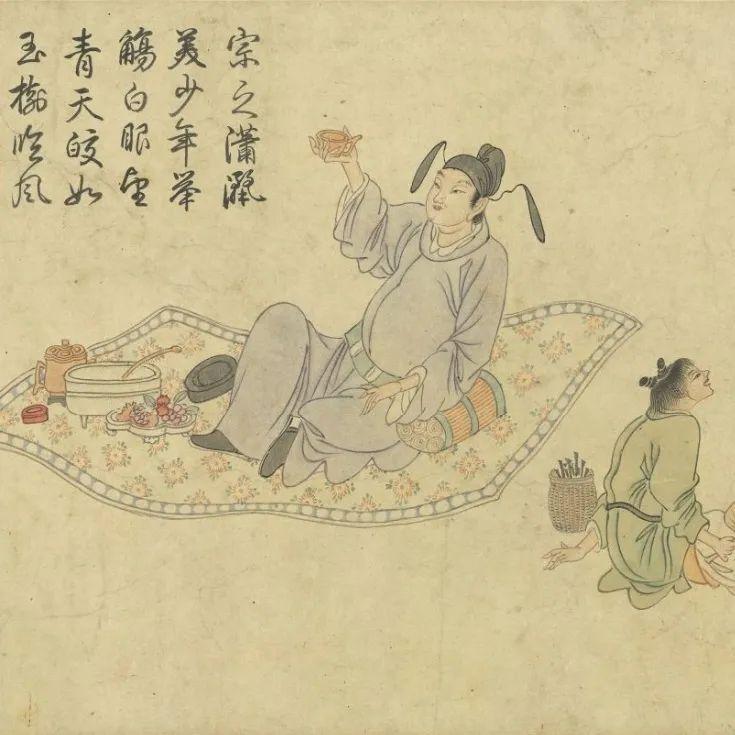 宗之瀟灑
美少年举
觴白眼望
青天皎如
玉樹临风